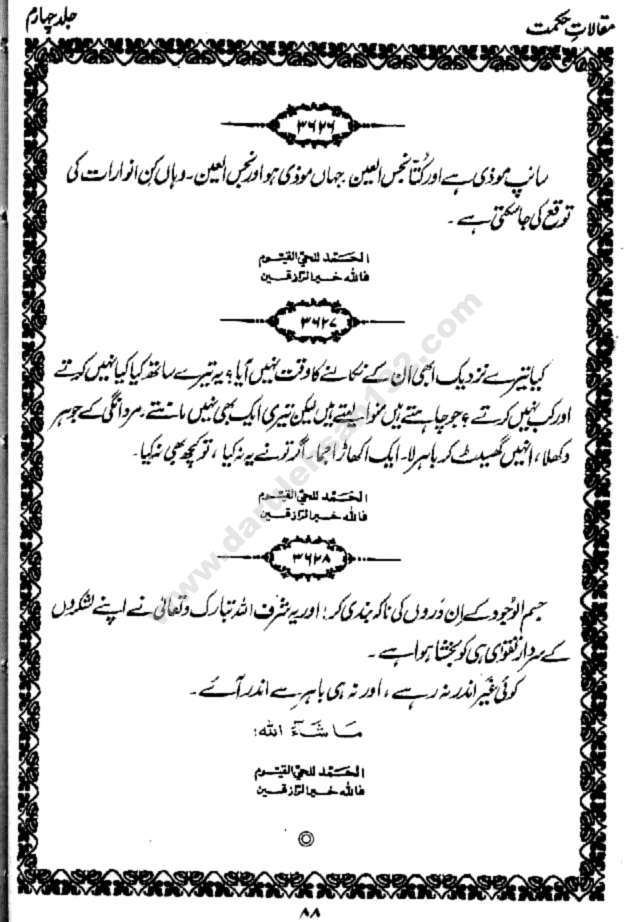 مقالاتِ حکمت
جلد چہارم
۳۶۲۶
سانپ موذی ہے اور کُتّا نجس العین جہاں موذی ہو اور نجس العین۔ وہاں کِن انوارات کی
توقع کی جا سکتی ہے۔
الحَمد للحیّ القیّوم
فاللہ خیرالرّازقین
۳۶۲۷
کیا تیرے نزدیک ابھی اُن کے نکالنے کا وقت نہیں آیا؟ یہ تیرے ساتھ کیا کیا نہیں کرتے
اور کب نہیں کرتے؟ جو چاہتے ہیں منوا لیتے ہیں لیکن تیری ایک بھی نہیں مانتے۔ مردانگی کے جوہر
دکھلا، انہیں گھسیٹ کر باہر لا۔ ایک اکھاڑا جما۔ اگر تو نے یہ نہ کیا، تو کچھ بھی نہ کیا۔
الحَمد للحیّ القیّوم
فاللہ خیرالرّازقین
۳۶۲۸
جسم الوُجود کے اِن دَروں کی ناکہ بندی کر! اور یہ شرف اللہ تبارک وتعالیٰ نے اپنے لشکروں
کے سردار تقویٰ ہی کو بخشا ہوا ہے۔
کوئی غیر اندر نہ رہے، اور نہ ہی باہر سے اندر آئے۔
مَا شَآءَ اللہ!
الحَمد للحیّ القیّوم
فاللہ خیرالرّازقین
۸۸
www.darulehsan132.com